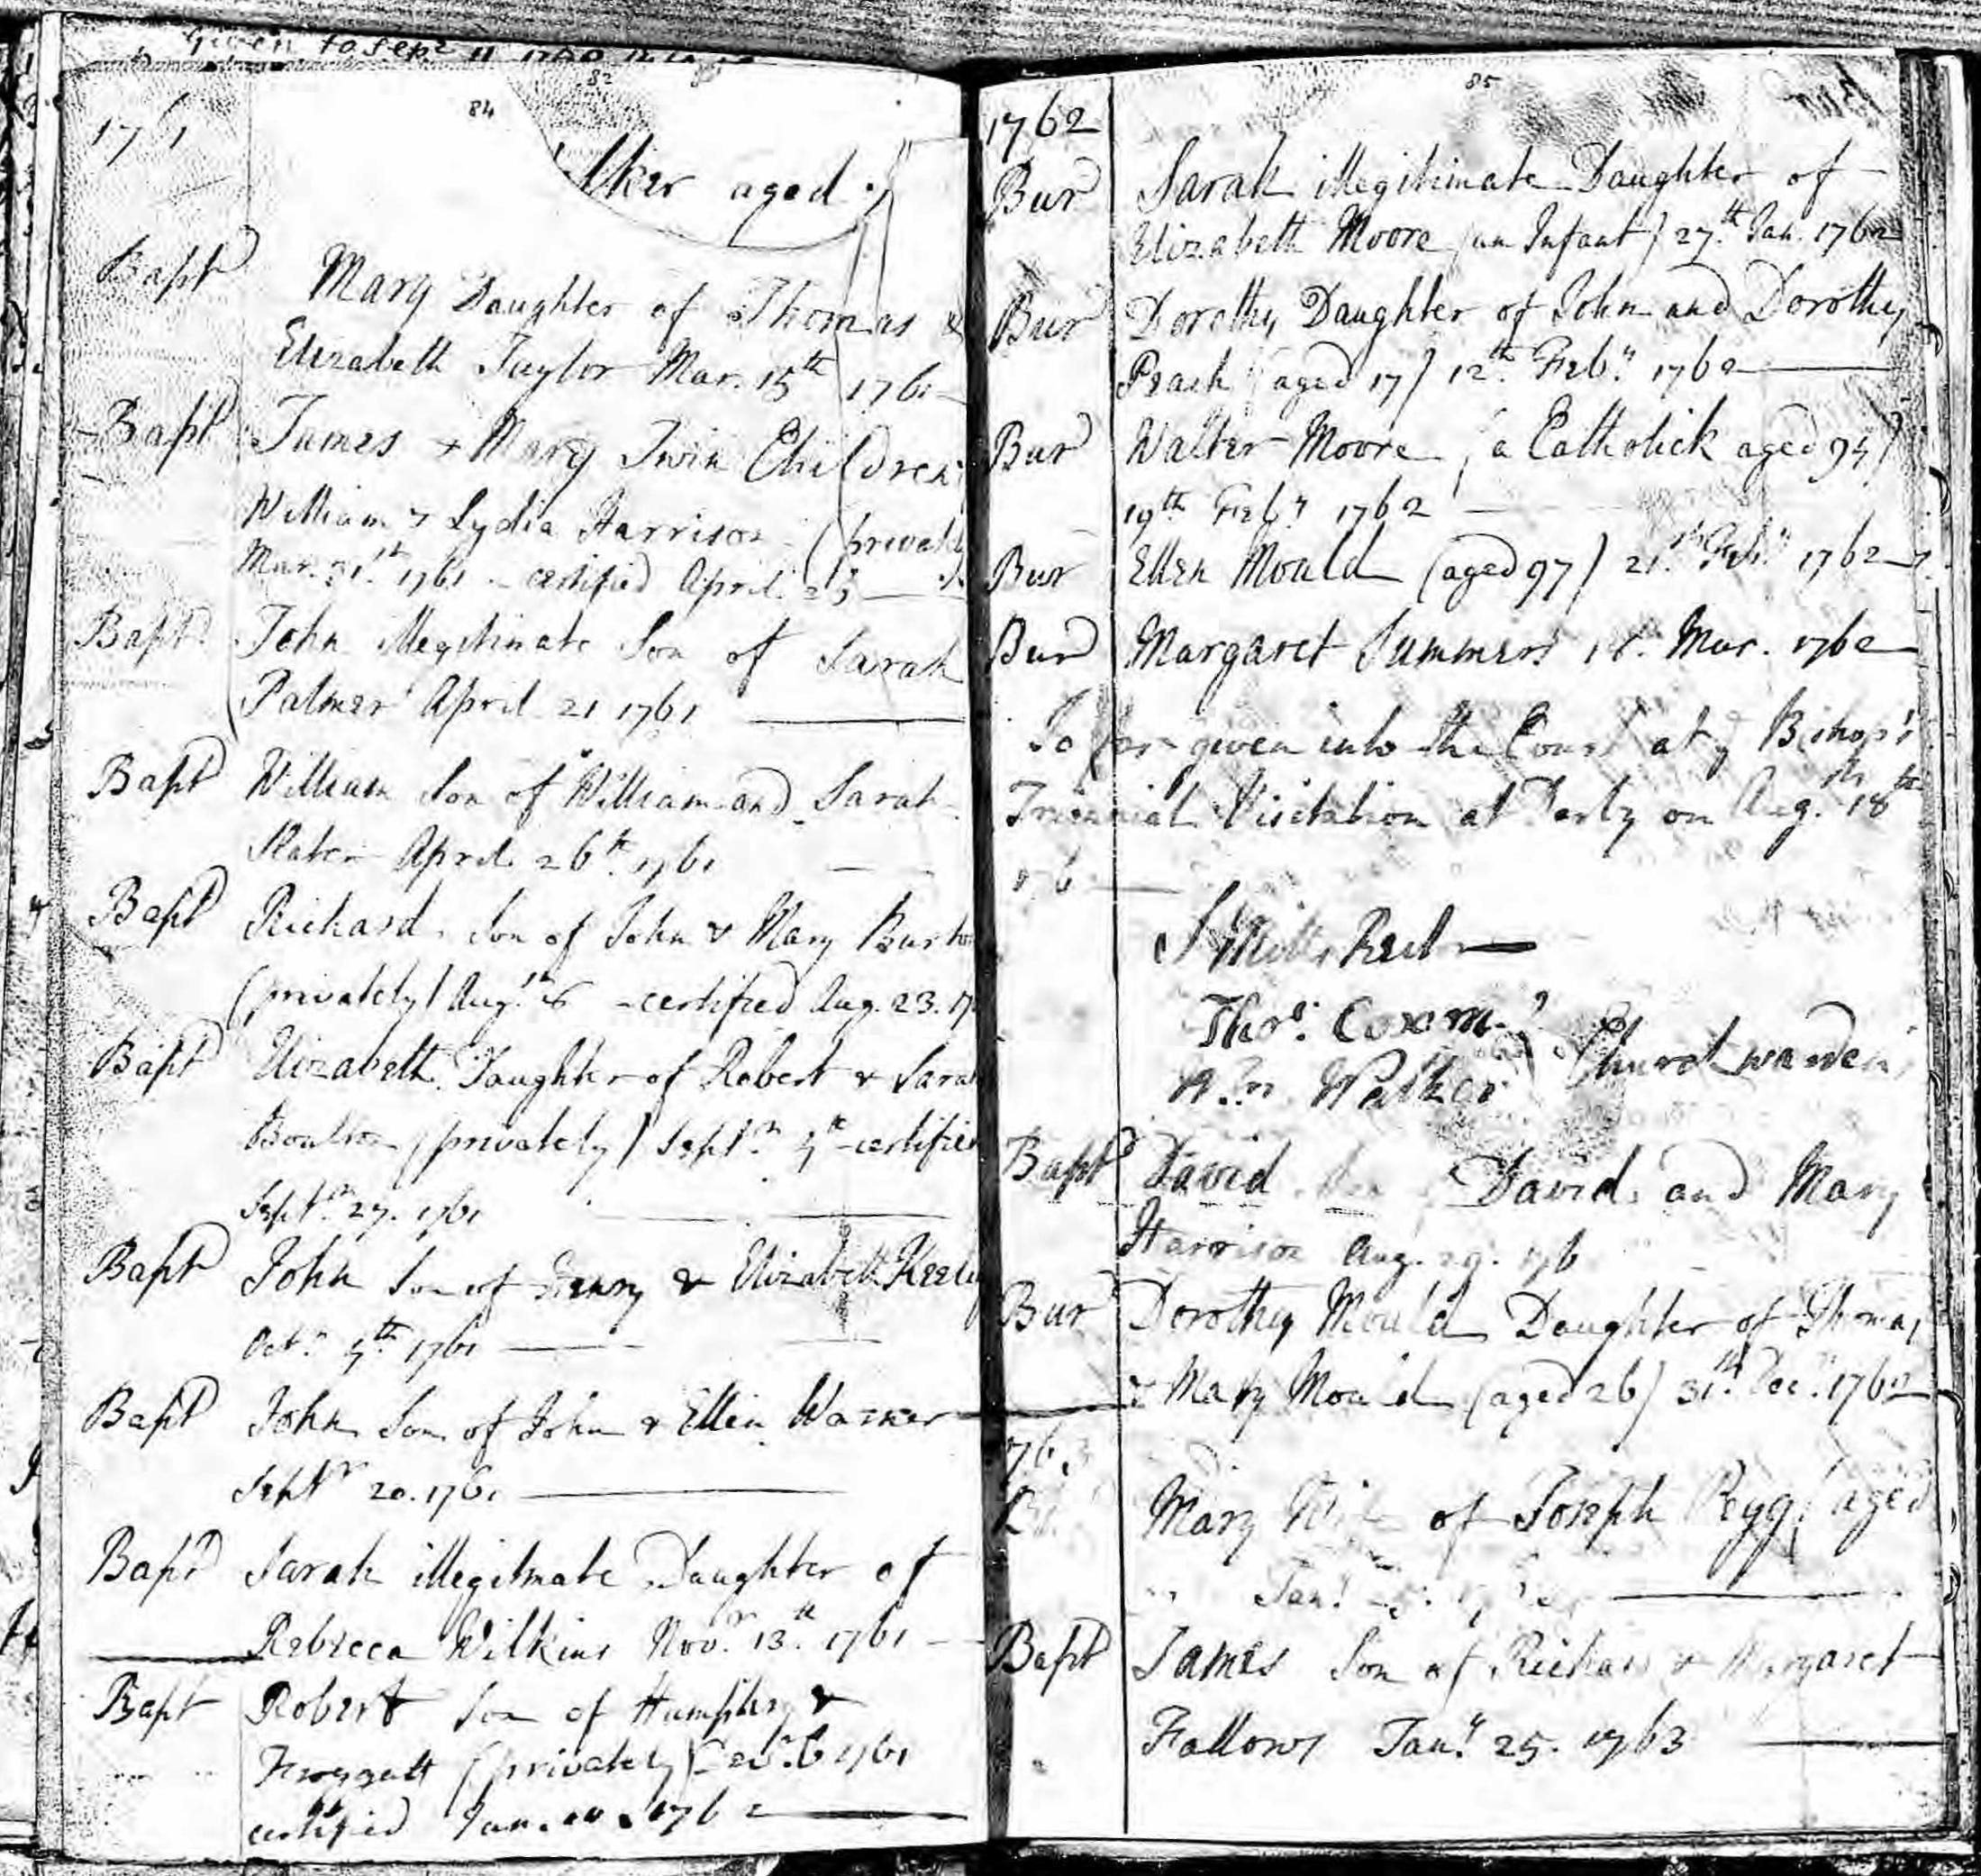 Given to Sept 11 1760
82
84
1761
lker aged
Bapt Mary Daughter of Thomas &
Elizabeth Taylor Mar. 15th 1761
Bapt James & Mary Twin Children
William & Lydia Harrison (privately
Mar. 31st 1761 - certified April 25
Bapt John illegitimate Son of Sarah
Palmer April 21 1761
Bapt William Son of William and Sarah
Slater April 26th 1761
Bapt Richard Son of John & Mary Burto
(privately) Aug. - certified Aug. 23. 17
Bapt Elizabeth Daughter of Robert & Sarah
Boulton (privately) Septr 4th - certified
Septr 27. 1761
Bapt John Son of Henry & Elizabeth Keeling
Octr 4th 1761
Bapt John Son of John & Ellin Warner
Septr 20. 1761
Bapt Sarah illegitmate Daughter of
Rebecca Wilkins Novr 13th 1761
Bapt Robert Son of Humphry &
Froggatt (privately) Decr 6 1761
certified Jan. 1762
85
1762
Bur Sarah illegitimate Daughter of
Elizabeth Moore (an Infant) 27th Jan. 1762
Bur Dorothy Daughter of John and Dorothy
Peach (aged 17) 12th Feby 1762
Bur Walter Moore (a Catholick aged 95)
19th Feby 1762
Bur Ellen Mould (aged 97) 21st Feby 1762
Bur Margaret Summers Mar. 1762
So far given into the Court at ye Bishop's
Triennial Visitation at Derby on Aug. 18th
176
S Mills Rectr
Thos. Coxon
Wm Walker Churchwardens
Bapt David Son of David and Mary
Harrison Aug. 29. 176
Bur Dorothy Mould Daughter of Thomas
& Mary Mould (aged 26) 31st Decr 1762
1763
Mary Wife of Joseph Pegg (aged
Jany
Bapt James Son of Richard & Margaret
Fallows Jany 25. 1763